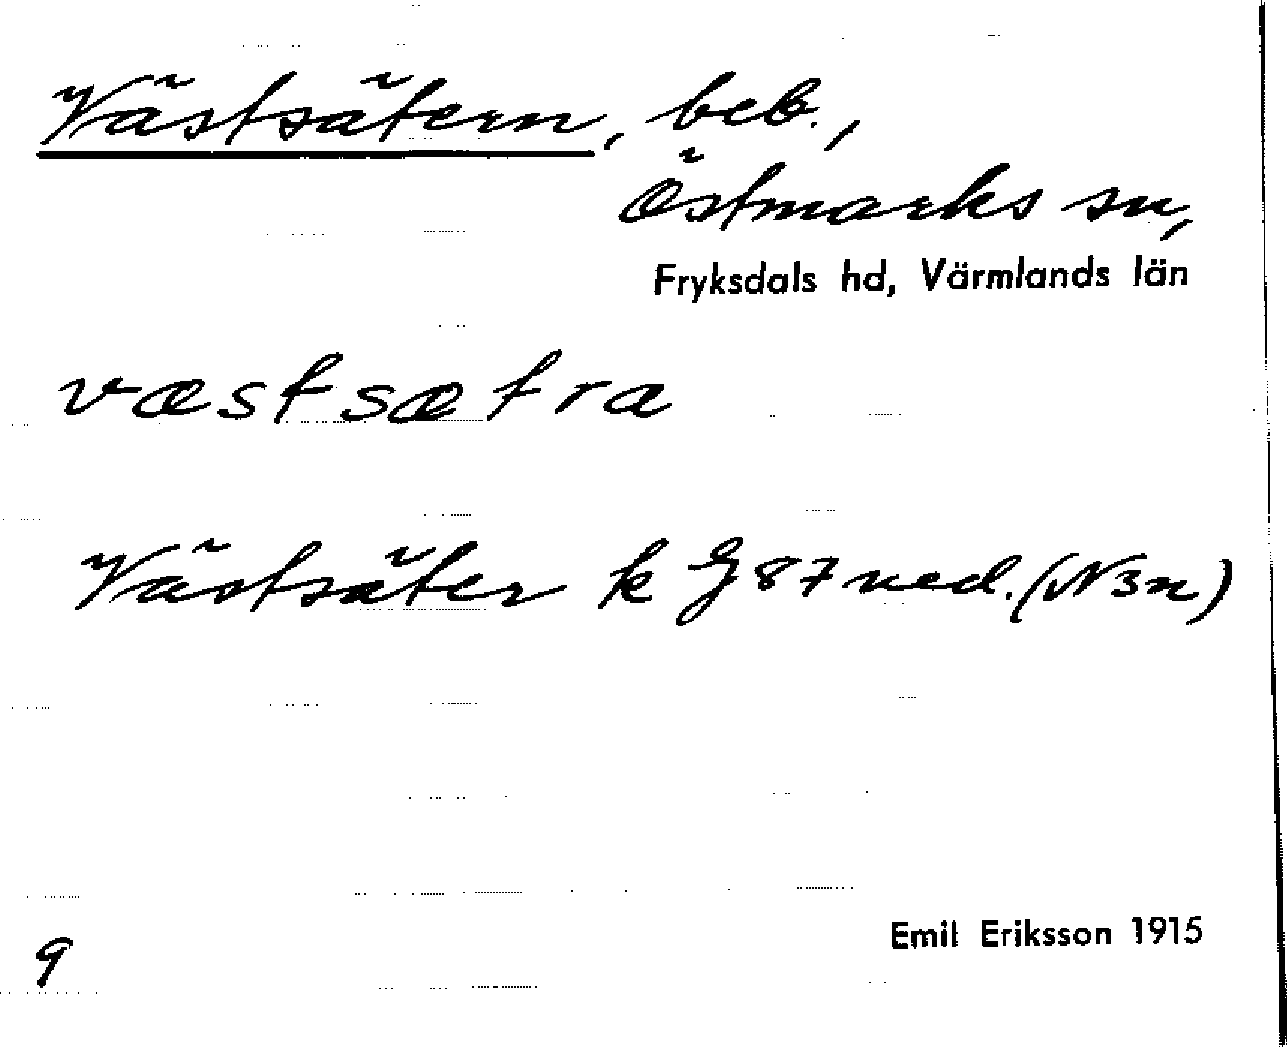 Västsätern, beb.,
Östmarks sn,
Fryksdals hd, Värmlands län
væstsætra
Västsäter k G 87 ned. (N3n)
9
Emil Eriksson 1915